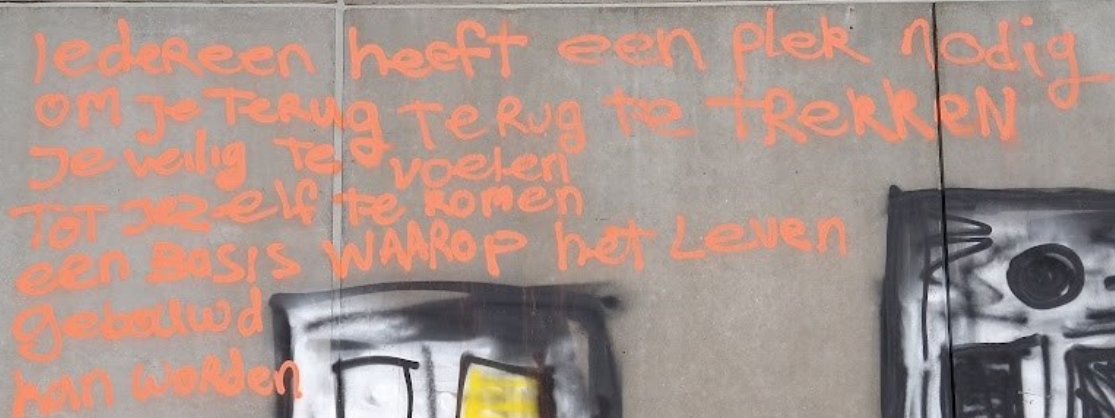 Iedereen heeft een plek nodig
om je terug terug te trekken
je veilig te voelen
tot jezelf te komen
een basis waarop het leven
gebouwd
kan worden